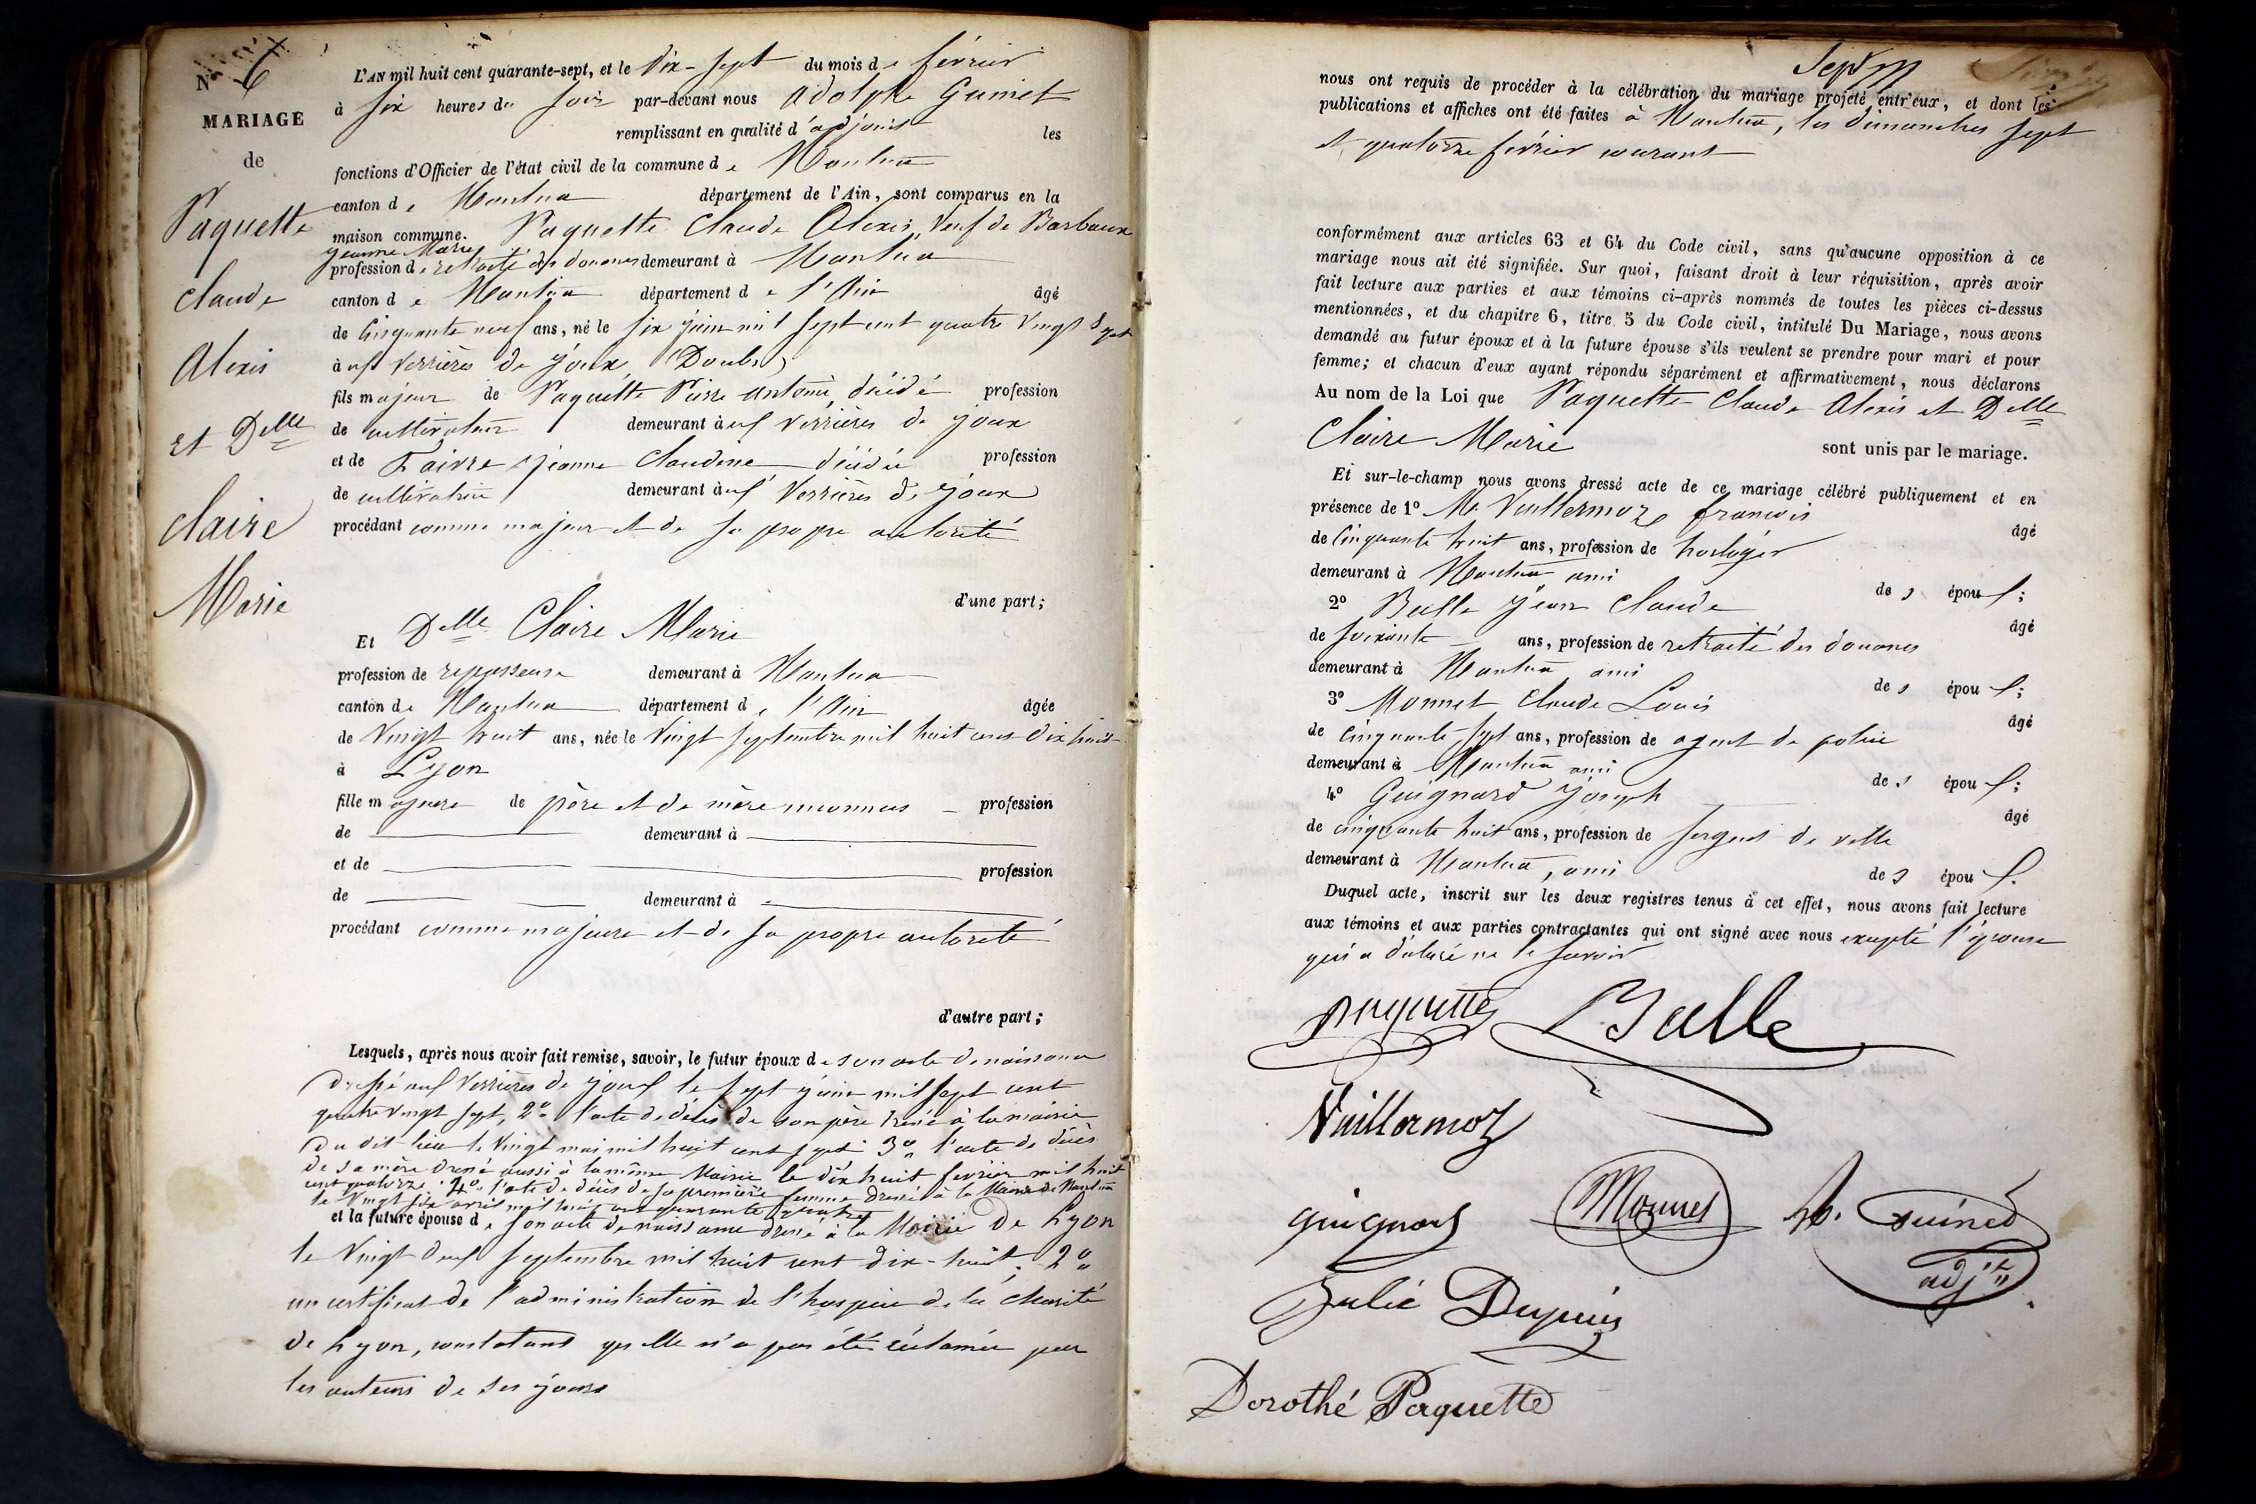 N° 6
MARIAGE
de
Paquette
Claude
Alexis
et Delle
Claire
Marie
L'AN mil huit cent quarante-sept, et le Dix-Sept du mois de février
à Six heures du Soir par-devant nous Adolphe Guinet
remplissant en qualité d'adjoint les
fonctions d'Officier de l'état civil de la commune de Nantua
canton de Nantua département de l'Ain, sont comparus en la
maison commune. Paquette Claude Alexis, Veuf de Barbaux
Jeanne Marie
profession de retraité des douanes demeurant à Nantua
canton de Nantua département de l'Ain âgé
de Cinquante neuf ans, né le Six juin mil Sept cent quatre vingt Sept
à aux Verrières de Joux (Doubs)
fils majeur de Paquette Pierre Antoine, décédé profession
de cultivateur demeurant à aux Verrières de Joux
et de Faivre Jeanne Claudine décédée profession
de cultivatrice demeurant à aux Verrières de Joux
procédant comme majeur et de sa propre autorité
d'une part;
Et Delle Claire Marie
profession de repasseuse demeurant à Nantua
canton de Nantua département de l'Ain âgée
de Vingt huit ans, née le Vingt Septembre mil huit cent dix huit
à Lyon
fille majeure de père et de mère inconnus profession
de demeurant à
et de profession
de demeurant à
procédant comme majeure et de sa propre autorité
d'autre part;
Lesquels, après nous avoir fait remise, savoir, le futur époux de son acte de naissance
dressé aux Verrières de Joux le Sept juin mil sept cent
quatre vingt sept, 2° l'acte de décès de son père dressé à la mairie
du dit lieu le Vingt mai mil huit cent sept 3° l'acte de décès
de sa mère dressé aussi à la même Mairie le dix huit février mil huit
cent quatorze. 4° l'acte de décès de sa première femme dressé à la Mairie de Nantua
le Vingt six avril mil huit cent quarante quatre
et la future épouse de son acte de naissance dressé à la Mairie de Lyon
le Vingt deux Septembre mil huit cent dix-huit, 2°
un certificat de l'administration de l'hospice de la charité
de Lyon, constatant qu'elle n'a pas été réclamée par
les auteurs de ses jours
Sept
nous ont requis de procéder à la célébration du mariage projeté entr'eux, et dont les
publications et affiches ont été faites à Nantua, les dimanches sept
et quatorze février courant
conformément aux articles 63 et 64 du Code civil, sans qu'aucune opposition à ce
mariage nous ait été signifiée. Sur quoi, faisant droit à leur réquisition, après avoir
fait lecture aux parties et aux témoins ci-après nommés de toutes les pièces ci-dessus
mentionnées, et du chapitre 6, titre 5 du Code civil, intitulé Du Mariage, nous avons
demandé au futur époux et à la future épouse s'ils veulent se prendre pour mari et pour
femme; et chacun d'eux ayant répondu séparément et affirmativement, nous déclarons
Au nom de la Loi que Paquette Claude Alexis et Delle
Claire Marie sont unis par le mariage.
Et sur-le-champ nous avons dressé acte de ce mariage célébré publiquement et en
présence de 1° Mr Vuillermoz françois âgé
de Cinquante huit ans, profession de horloger
demeurant à Nantua ami des époux;
2° Balle Jean Claude âgé
de soixante ans, profession de retraité des douanes
demeurant à Nantua ami des époux;
3° Monnet Claude Louis âgé
de Cinquante sept ans, profession de agent de police
demeurant à Nantua ami des époux;
4° Guignard Joseph âgé
de cinquante huit ans, profession de sergent de ville
demeurant à Nantua, ami des époux.
Duquel acte, inscrit sur les deux registres tenus à cet effet, nous avons fait lecture
aux témoins et aux parties contractantes qui ont signé avec nous excepté l'épouse
qui a déclaré ne le savoir
paquette Balle
Vuillermoz
guignard Monnet A. Guinet
adjt
Julie Dupuis
Dorothé Paquette